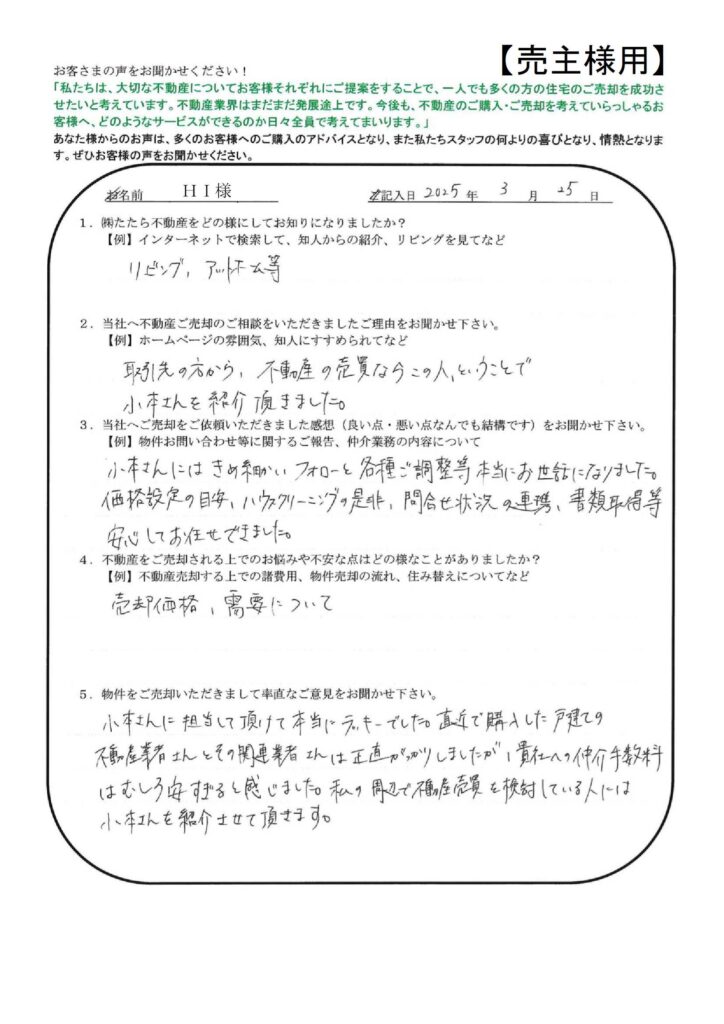 【売主様用】
お客さまの声をお聞かせください！
「私たちは、大切な不動産についてお客様それぞれにご提案をすることで、一人でも多くの方の住宅のご売却を成功さ
せたいと考えています。不動産業界はまだまだ発展途上です。今後も、不動産のご購入・ご売却を考えていらっしゃるお
客様へ、どのようなサービスができるのか日々全員で考えてまいります。」
あなた様からのお声は、多くのお客様へのご購入のアドバイスとなり、また私たちスタッフの何よりの喜びとなり、情熱となりま
す。ぜひお客様の声をお聞かせください。
お名前 ＨＩ様 ご記入日 2025 年 3 月 25 日
１．㈱たたら不動産をどの様にしてお知りになりましたか？
【例】インターネットで検索して、知人からの紹介、リビングを見てなど
リビング、アットホーム等
２．当社へ不動産ご売却のご相談をいただきましたご理由をお聞かせ下さい。
【例】ホームページの雰囲気、知人にすすめられてなど
取引先の方から、不動産の売買ならこの人、ということで
小本さんを紹介頂きました。
３．当社へご売却をご依頼いただきました感想（良い点・悪い点なんでも結構です）をお聞かせ下さい。
【例】物件お問い合わせ等に関するご報告、仲介業務の内容について
小本さんにはきめ細かいフォローと各種ご調整等本当にお世話になりました。
価格設定の目安、ハウスクリーニングの是非、問合せ状況の連携、書類取得等
安心してお任せできました。
４．不動産をご売却される上でのお悩みや不安な点はどの様なことがありましたか？
【例】不動産売却する上での諸費用、物件売却の流れ、住み替えについてなど
売却価格、需要について
５．物件をご売却いただきまして率直なご意見をお聞かせ下さい。
小本さんに担当して頂けて本当にラッキーでした。直近で購入した戸建ての
不動産業者さんとその関連業者さんは正直がっかりしましたが、貴社への仲介手数料
はむしろ安すぎると感じました。私の周辺で不動産売買を検討している人には
小本さんを紹介させて頂きます。